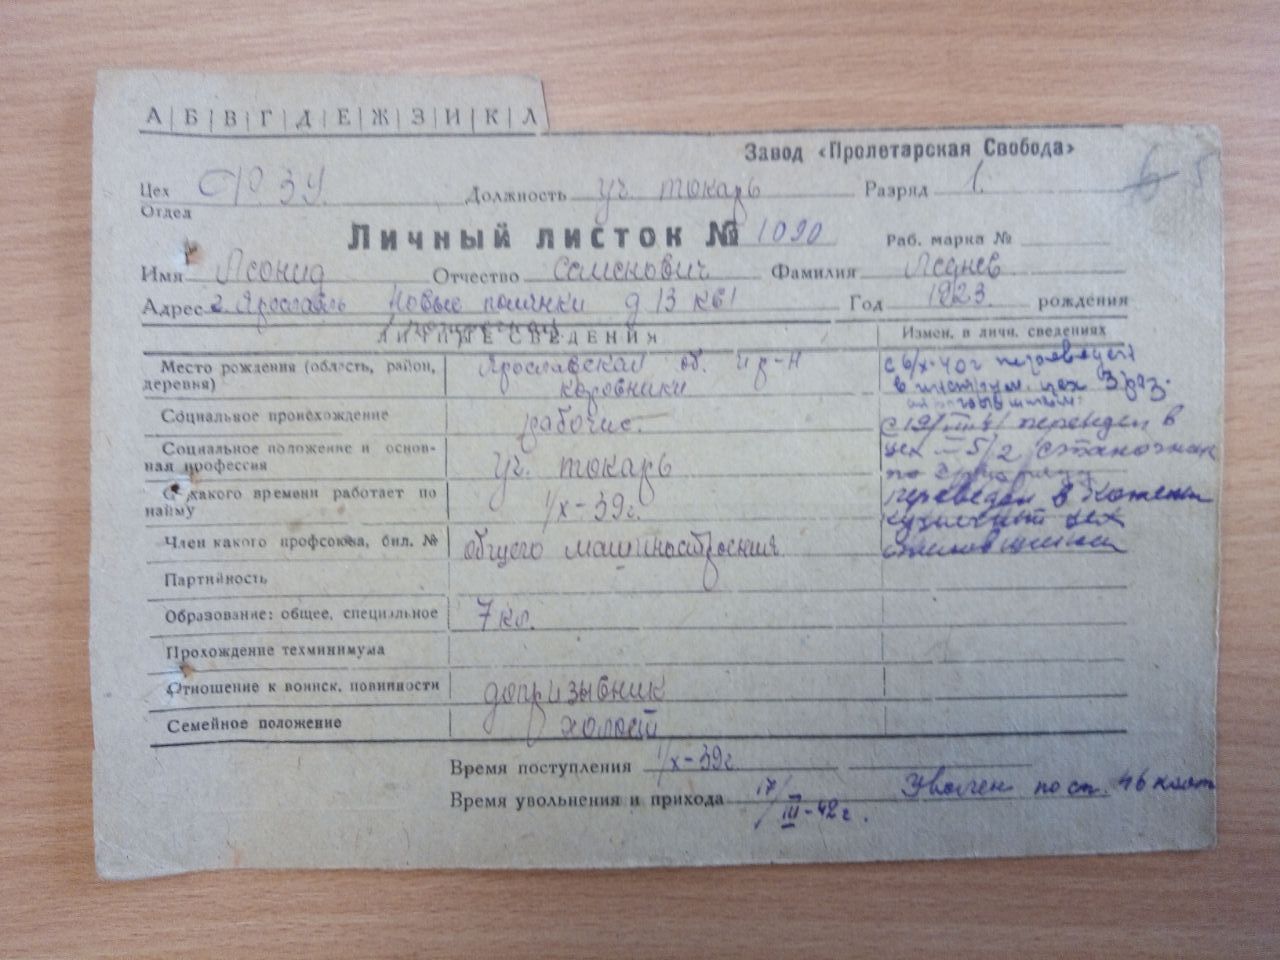 А Б В Г Д Е Ж З И К Л
Завод «Пролетарская Свобода»
6 5
Цех Отдел Должность уч. токарь Разряд 1.
Личный листок № 1090 Раб. марка №
Имя Леонид Отчество Семенович Фамилия Леднев
Адрес г. Ярославль Новые д 13 кв 1 Год 1923 рождения
ЛИЧНЫЕ СВЕДЕНИЯ Измен. в личн. сведениях
Место рождения (область, район, деревня) Ярославская об. Яр-н
коровники
Социальное происхождение рабочие.
Социальное положение и основная профессия уч. токарь
С какого времени работает по найму 1/X-39г.
Член какого профсоюза, бил. № общего машиностроения
Партийность
Образование: общее, специальное 7 кл.
Прохождение техминимума
Отношение к воинск. повинности допризывник
Семейное положение холост
с 6/X-40г переведен
в инструм. цех 3 раз.
переведен в
цех 5/2
переведен в
цех
Время поступления 1/X-39г.
Время увольнения и прихода 17/III-42г. Уволен по ст. 46